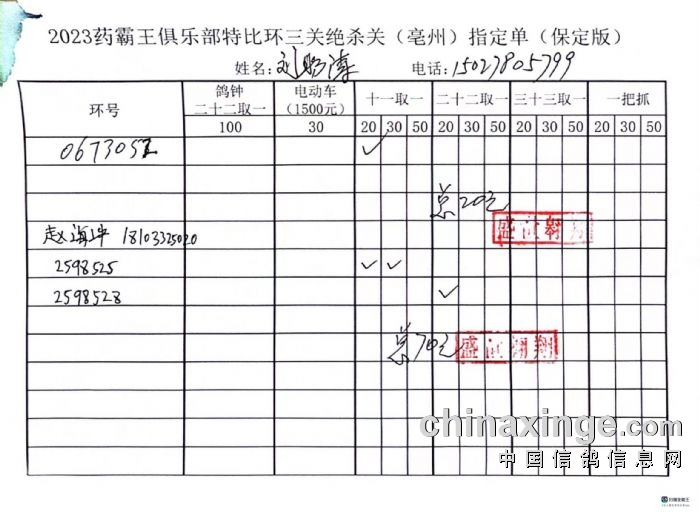 2023药霸王俱乐部特比环三关绝杀关（亳州）指定单（保定版）
姓名: 刘 电话: 15027805799
环号 鸽钟 二十二取一 电动车 (1500元) 十一取一 二十二取一 三十三取一 一把抓
100 30 20 30 50 20 30 50 20 30 50 20 30 50
067305 ✓
总20元
盛 翔
赵海坤 18103325020
2598525 ✓ ✓
2598528 ✓
总70元
盛 翔
chinaxinge.com
中国信鸽信息网